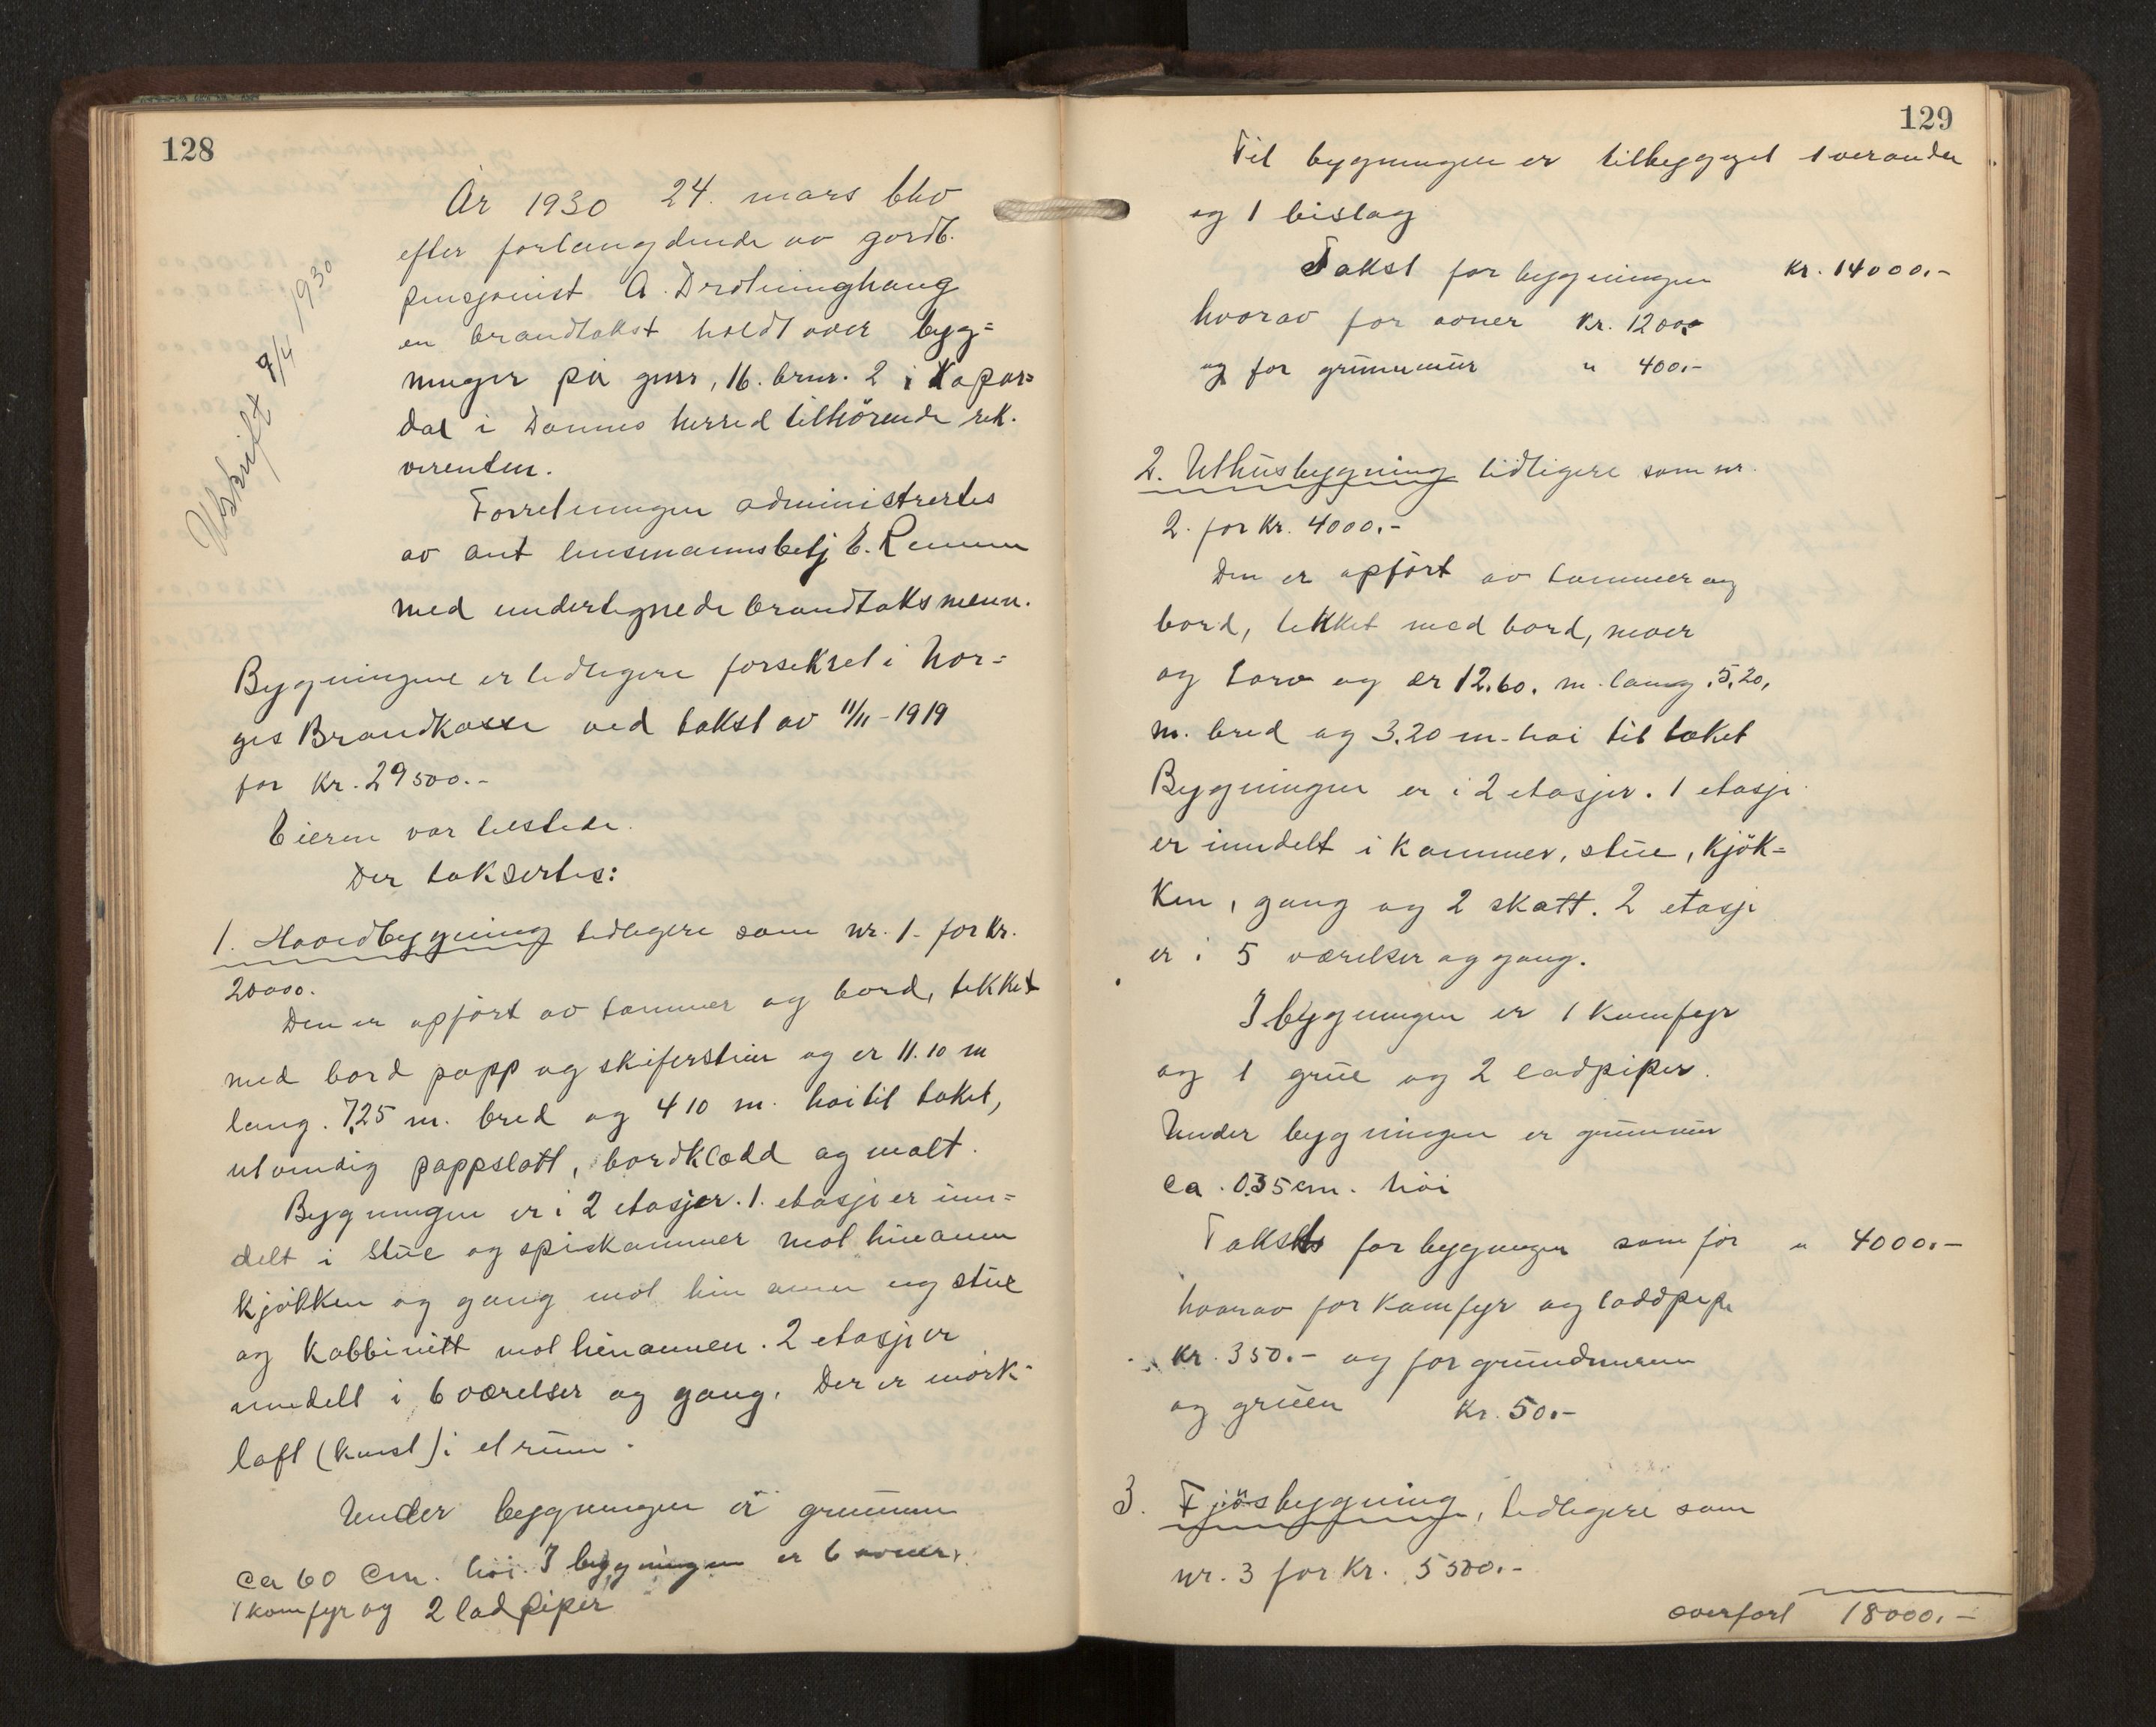 128
År 1930 24. mars blev
efter forlangdende av gardb.
pensjonist A. Drotninghaug
en brandtakst holdt over byg=
ninger på gnr, 16. brnr. 2 i
dal i Dovre herred tilhörende rek.
virenten.
Utskrift 9/4 1930
Forretningen administrertes
av ant lensmannsbetj E.
med undertegnede brandtaksmenn.
Bygningene er tidligere forsikret i Nor=
ges Brandkasse ved takst av 11/11-1919
for Kr. 29500.-
Eieren var tilstede.
Der taksertes:
1. Hovedbygning tidligere som nr. 1- for Kr.
20000.
Den er opført av tømmer og bord, tekket
med bord papp og skiferstein og er 11.10 m
lang. 7,25 m. bred og 4 10 m. høi til taket,
utvendig pappslått, bordklædd og malt.
Bygningen er i 2 etasjer. 1. etasje er inn=
delt i stue og spiskammer mot hinannen
kjøkken og gang mot hin annen og stue
og kabbinett mot hinannen. 2 etasje er
inndelt i 6 værelser og gang. Der er mörk=
loft (kvist) i et rum.
Under bygningen er grunmur
ca 60 cm. høi. I bygningen er 6 ovner,
1 komfyr og 2 lodpiper
129
Til bygningen er tilbygget 1 veranda
og 1 bislag
Takst for bygningen Kr. 14000.-
hvorav for ovner Kr. 1200.-
og for grunnmur " 400.-
2. Uthusbygning tidligere som nr.
2. for Kr. 4000.-
Den er opført av tømmer og
bord, tekket med bord, never
og torv og er 12.60. m. lang. 5,20,
m. bred og 3.20 m. høi til taket
Bygningen er i 2 etasjer. 1 etasje
er inndelt i kammer, stue, kjök=
ken, gang og 2 skått. 2 etasje
er i 5 værelser og gang.
I bygningen er 1 komfyr
og 1 grue og 2 lodpiper.
Under bygningen er grunmur
ca. 0.35 cm. høi
Takst for bygningen som för " 4000.-
hvorav for komfyr og loddpipe
Kr. 350.- og for grundmuren
og gruen Kr. 50.-
3. Fjösbygning, tidligere som
nr. 3 for Kr. 5500.-
overført 18000.-